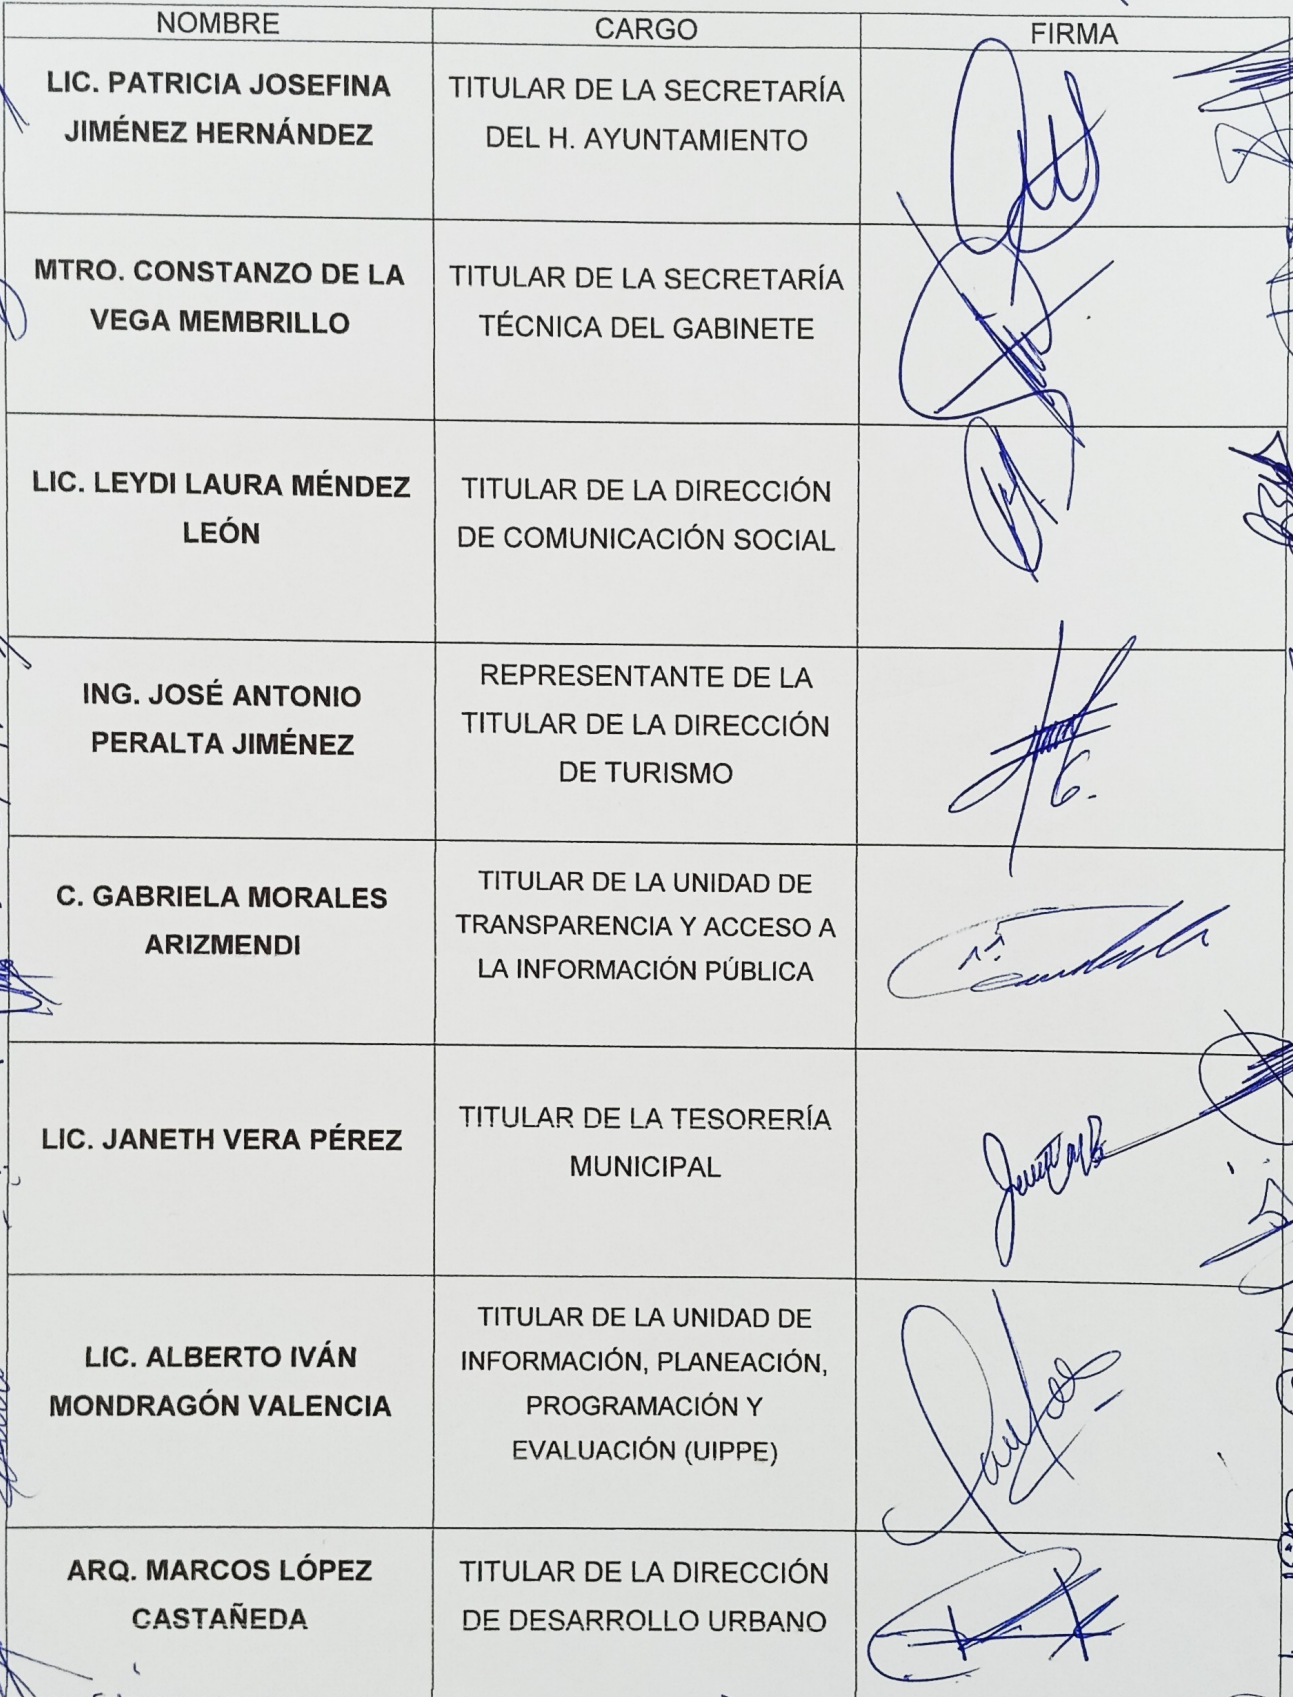 NOMBRE CARGO FIRMA
LIC. PATRICIA JOSEFINA
JIMÉNEZ HERNÁNDEZ
TITULAR DE LA SECRETARÍA
DEL H. AYUNTAMIENTO
MTRO. CONSTANZO DE LA
VEGA MEMBRILLO
TITULAR DE LA SECRETARÍA
TÉCNICA DEL GABINETE
LIC. LEYDI LAURA MÉNDEZ
LEÓN
TITULAR DE LA DIRECCIÓN
DE COMUNICACIÓN SOCIAL
ING. JOSÉ ANTONIO
PERALTA JIMÉNEZ
REPRESENTANTE DE LA
TITULAR DE LA DIRECCIÓN
DE TURISMO
C. GABRIELA MORALES
ARIZMENDI
TITULAR DE LA UNIDAD DE
TRANSPARENCIA Y ACCESO A
LA INFORMACIÓN PÚBLICA
LIC. JANETH VERA PÉREZ
TITULAR DE LA TESORERÍA
MUNICIPAL
LIC. ALBERTO IVÁN
MONDRAGÓN VALENCIA
TITULAR DE LA UNIDAD DE
INFORMACIÓN, PLANEACIÓN,
PROGRAMACIÓN Y
EVALUACIÓN (UIPPE)
ARQ. MARCOS LÓPEZ
CASTAÑEDA
TITULAR DE LA DIRECCIÓN
DE DESARROLLO URBANO